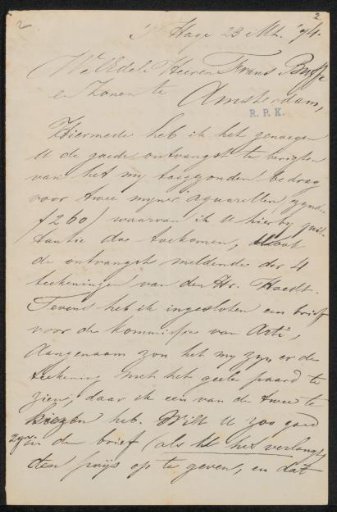 2
's Hage 23 Mt. '94.
WelEdele Heeren Frans Buffa
en Zonen te
Amsterdam,
R. P. K.
Hiermede heb ik het genoegen
U de goede ontvangst te berigten
van het mij toegezonden bedrag
voor twee mijner aquarellen (zynde
f 260) waarvan ik U hierby qui-
tantie doe toekomen,
de ontvangst meldende der 4
teekeningen van den Hr.
Tevens heb ik ingesloten een brief
voor de kommissie van Arti,
Aangenaam zou het my zyn er de
teekening met het gele paard te
zien, daar ik een van de twee te
kiezen heb. Wilt U zoo goed
zyn in den brief (als U het verlangt)
den prys op te geven, en dat